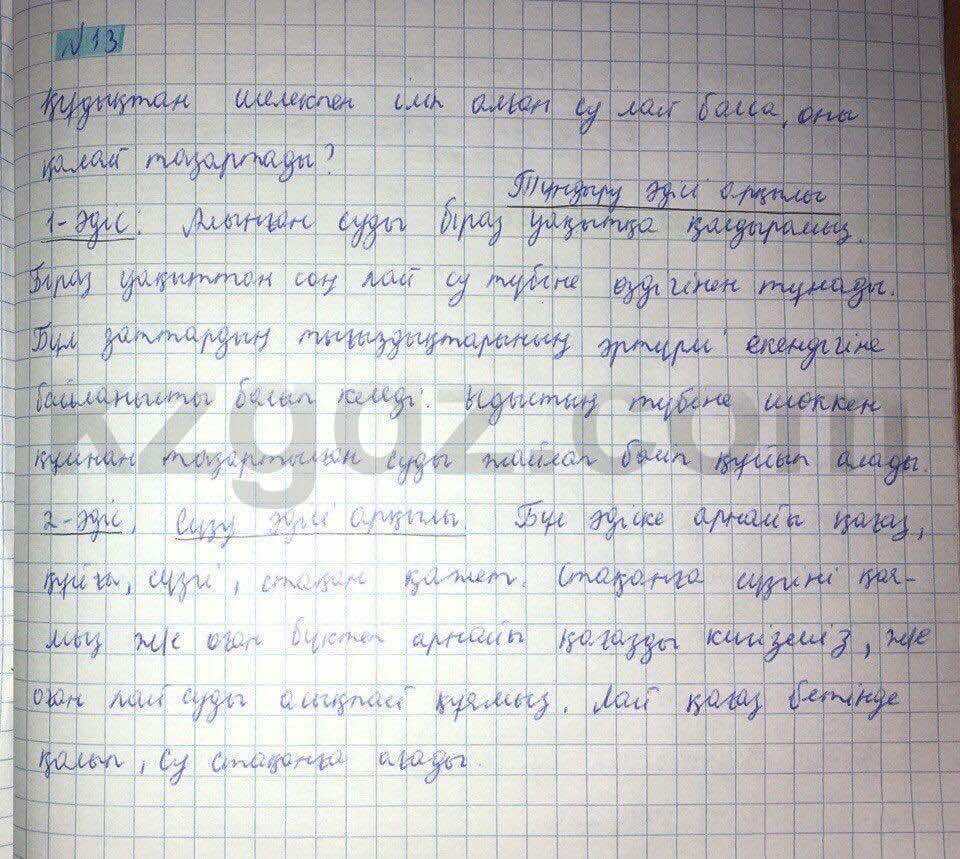 №13
Құдықтан шелекпен іліп алған су лай болса, оны
қалай тазартады?
Тұндыру әдісі арқылы
1-әдіс: Алынған суды біраз уақытқа қалдырамыз.
Біраз уақыттан соң лай су түбіне өздігінен тұнады.
Бұл заттардың тығыздықтарының әртүрлі екендігіне
байланысты болып келеді. Ыдыстың түбіне шөккен
құмнан тазартылған суды жайлап бөліп құйып алады.
2-әдіс: Сүзу әдісі арқылы. Бұл әдіске арнайы қағаз,
құйғы, сүзгі, стақан қажет. Стақанға сүзгіні қоя-
мыз ж/е оған бүктеп арнайы қағазды кигіземіз, ж/е
оған лай суды асықпай құямыз. Лай қағаз бетінде
қалып, су стақанға ағады.
kzgdz.com